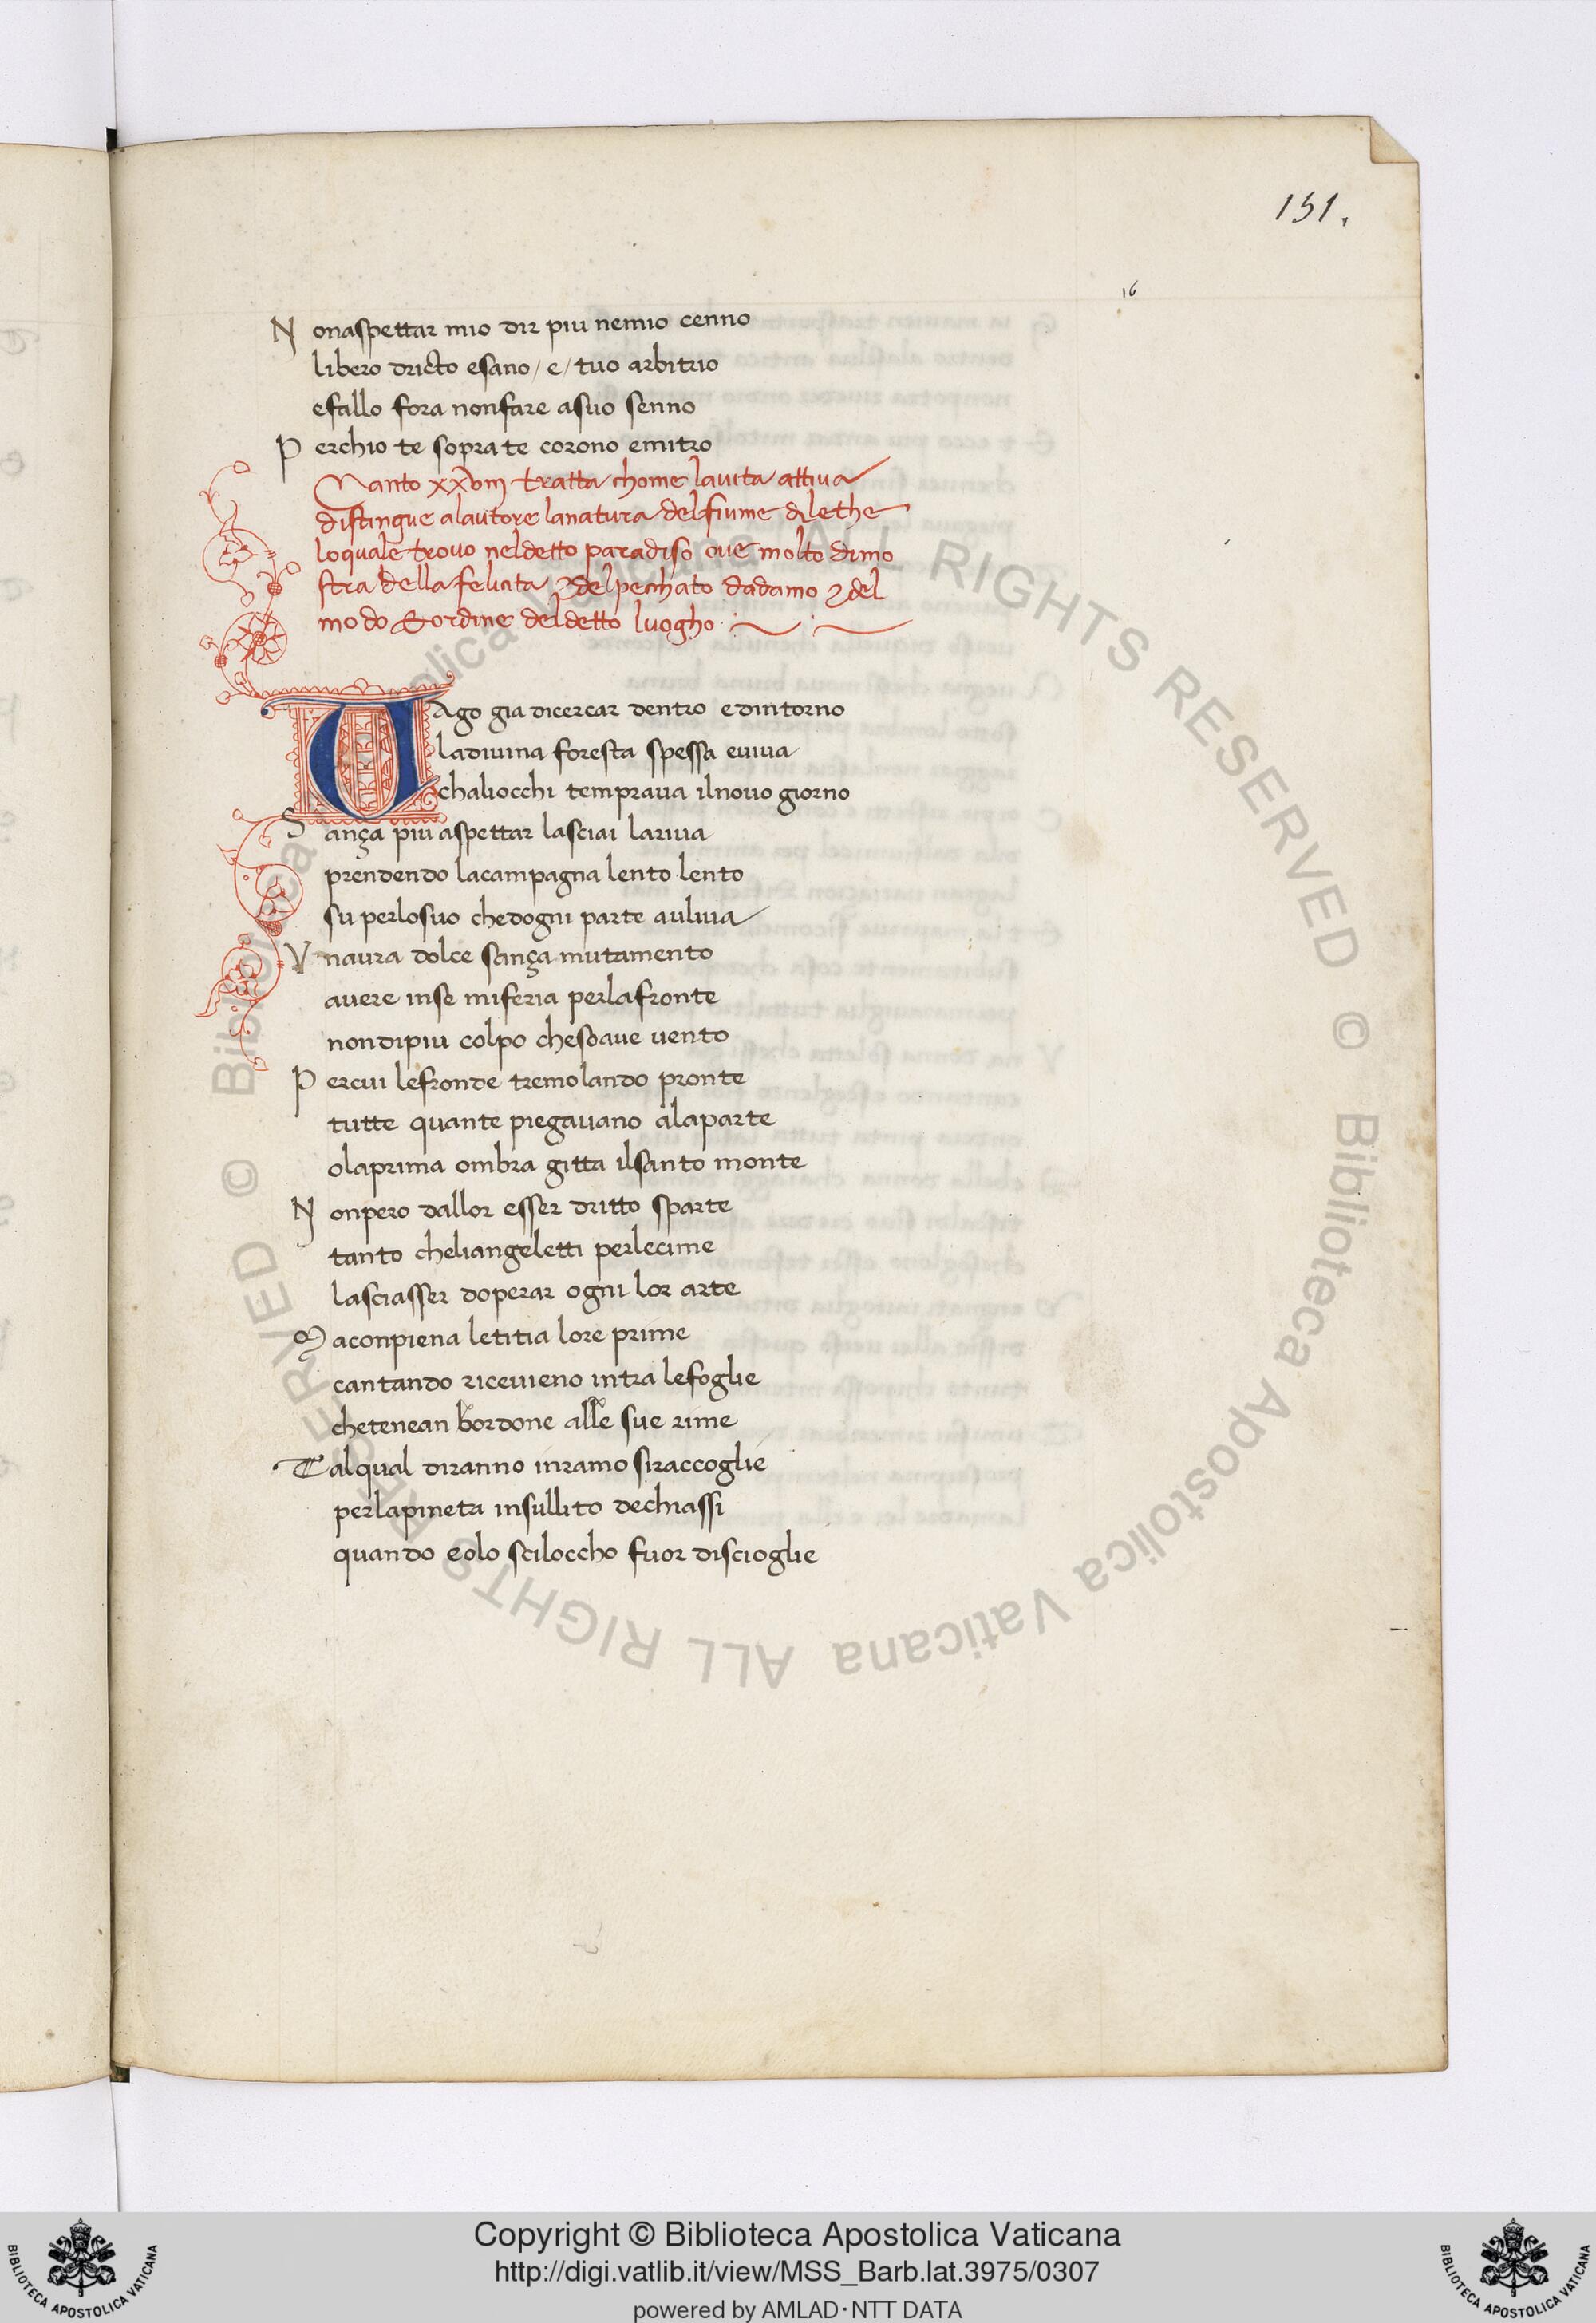 151.
16
N onaspettar mio dir piu nemio cenno
libero dricto esano/e/tuo arbitrio
efallo fora nonfare asuo senno
P erchio te sopra te corono emitro
Canto xxviij tratta chome lauita attiua
distingue alautore lanatura delfiume dilethe
loquale trouo neldetto paradiso oue molto dimo
stra della felicita & del pecchato dadamo & del
modo & ordine deldetto luogho
VAgo gia dicercar dentro edintorno
ladiuina foresta spessa euiua
chaliocchi tempraua ilnouo giorno
S ança piu aspettar lasciai lariua
prendendo lacampagna lento lento
su perlosuo chedogni parte auliua
V naura dolce sança mutamento
auere inse miferia perlafronte
nondipiu colpo chesoaue uento
P ercui lefronde tremolando pronte
tutte quante piegauano alaparte
olaprima ombra gitta ilsanto monte
N onpero dallor esser dritto sparte
tanto cheliangeletti perlecime
lasciasser doperar ogni lor arte
M aconpiena letitia lore prime
cantando riceuieno intra lefoglie
chetenean bordone alle sue rime
T alqual diranno inramo siraccoglie
perlapineta insullito dechiassi
quando eolo sciloccho fuor discioglie
© Biblioteca Apostolica Vaticana ALL RIGHTS RESERVED © Biblioteca Apostolica Vaticana ALL RIGHTS RESERVED
Copyright © Biblioteca Apostolica Vaticana
http://digi.vatlib.it/view/MSS_Barb.lat.3975/0307
powered by AMLAD·NTT DATA
BIBLIOTECA APOSTOLICA VATICANA
BIBLIOTECA APOSTOLICA VATICANA